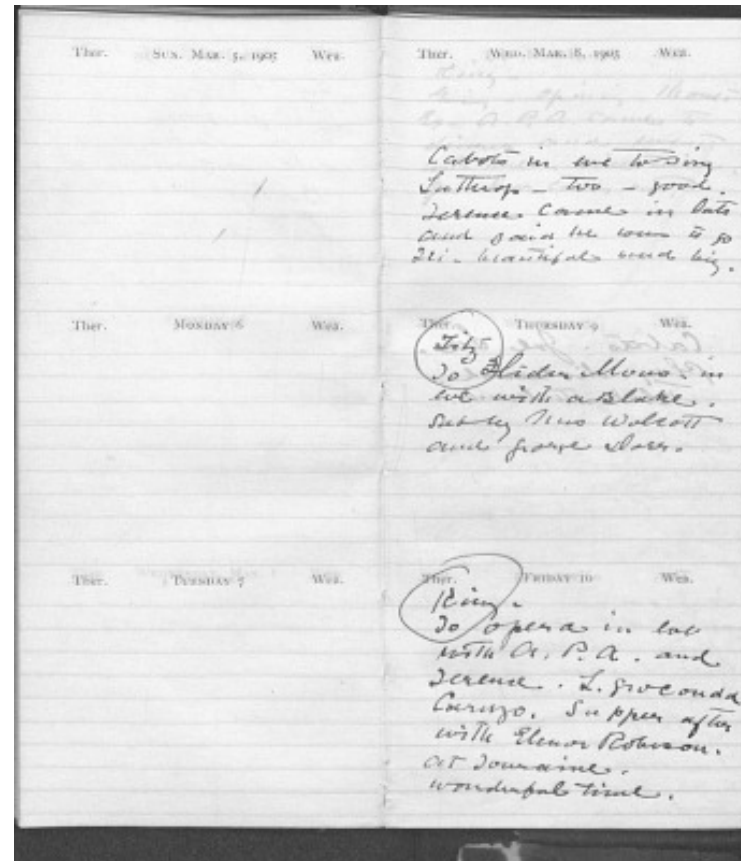 Ther. SUN. MAR. 5, 1905 Wea.
Ther. MONDAY 6 Wea.
Ther. TUESDAY 7 Wea.
Ther. WED. MAR. 8, 1905 Wea.
Cabots in eve to sing
Lothrop - two - good.
Terence came in late
and said he was to go
Fri. beautiful and big.
Ther. THURSDAY 9 Wea.
Fitz
To in
eve with a Blake.
Sat by Mrs Wolcott
and George Dorr.
Ther. FRIDAY 10 Wea.
King.
To opera in eve
with A. P. A. and
Terence. L. Gioconda
Caruzo. Supper after
with Elinor Robeson.
at Touraine.
wonderful time.